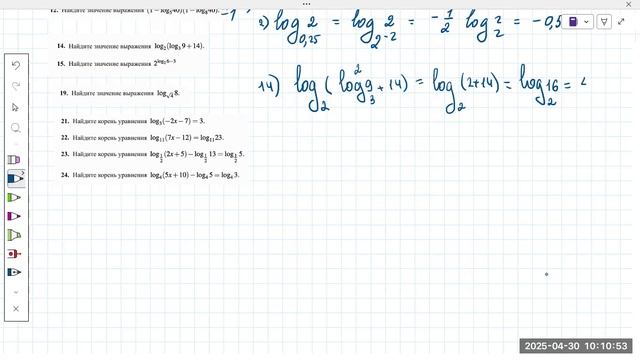 12. Найдите значение выражения
-1
2) log_{0,25} 2 = log_{2^{-2}} 2 = -\frac{1}{2} log_2 2 = -0,5
14. Найдите значение выражения log₂(log₃ 9 + 14).
14) log_2 (log_3 9 + 14) = log_2 (2+14) = log_2 16 = 4
15. Найдите значение выражения 2^{log₂ 6−3}
19. Найдите значение выражения
21. Найдите корень уравнения log₅(−2x − 7) = 3.
22. Найдите корень уравнения log₁₁(7x − 12) = log₁₁ 23.
23. Найдите корень уравнения log_{\frac{1}{2}} (2x + 5) − log_{\frac{1}{2}} 13 = log_{\frac{1}{2}} 5.
24. Найдите корень уравнения log₄(5x + 10) − log₄ 5 = log₄ 3.
2025-04-30 10:10:53